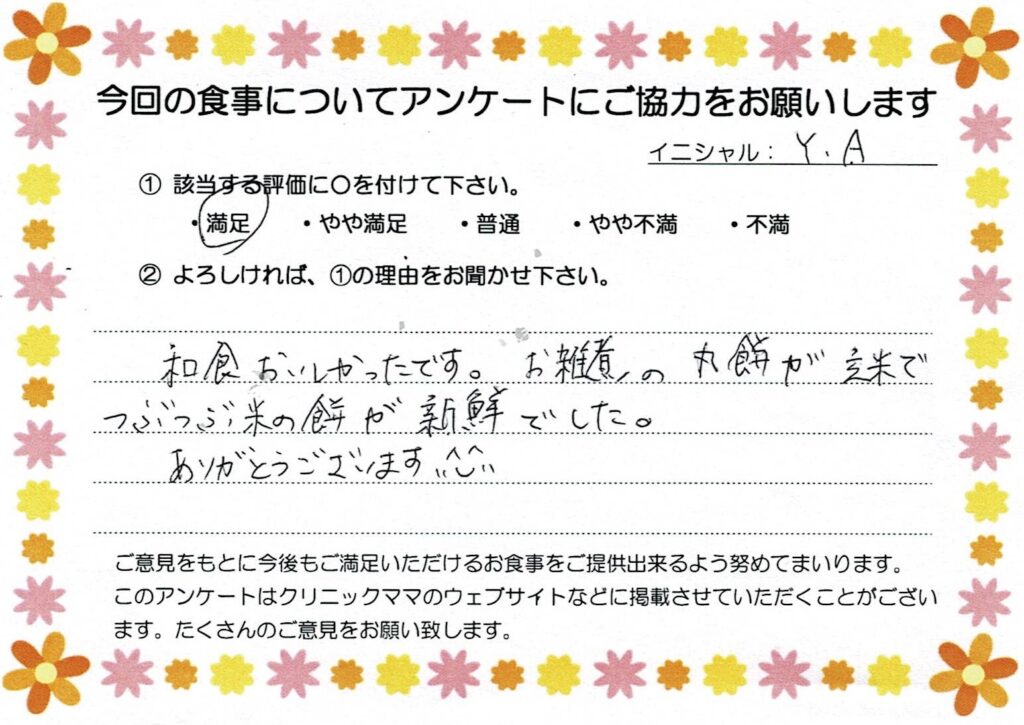 今回の食事についてアンケートにご協力をお願いします
イニシャル： Y.A
① 該当する評価に〇を付けて下さい。
・満足 ・やや満足 ・普通 ・やや不満 ・不満
② よろしければ、①の理由をお聞かせ下さい。
和食おいしかったです。 お雑煮の 丸餅が 玄米で
つぶつぶ米の餅が 新鮮でした。
ありがとうございます
ご意見をもとに今後もご満足いただけるお食事をご提供出来るよう努めてまいります。
このアンケートはクリニックママのウェブサイトなどに掲載させていただくことがござい
ます。たくさんのご意見をお願い致します。